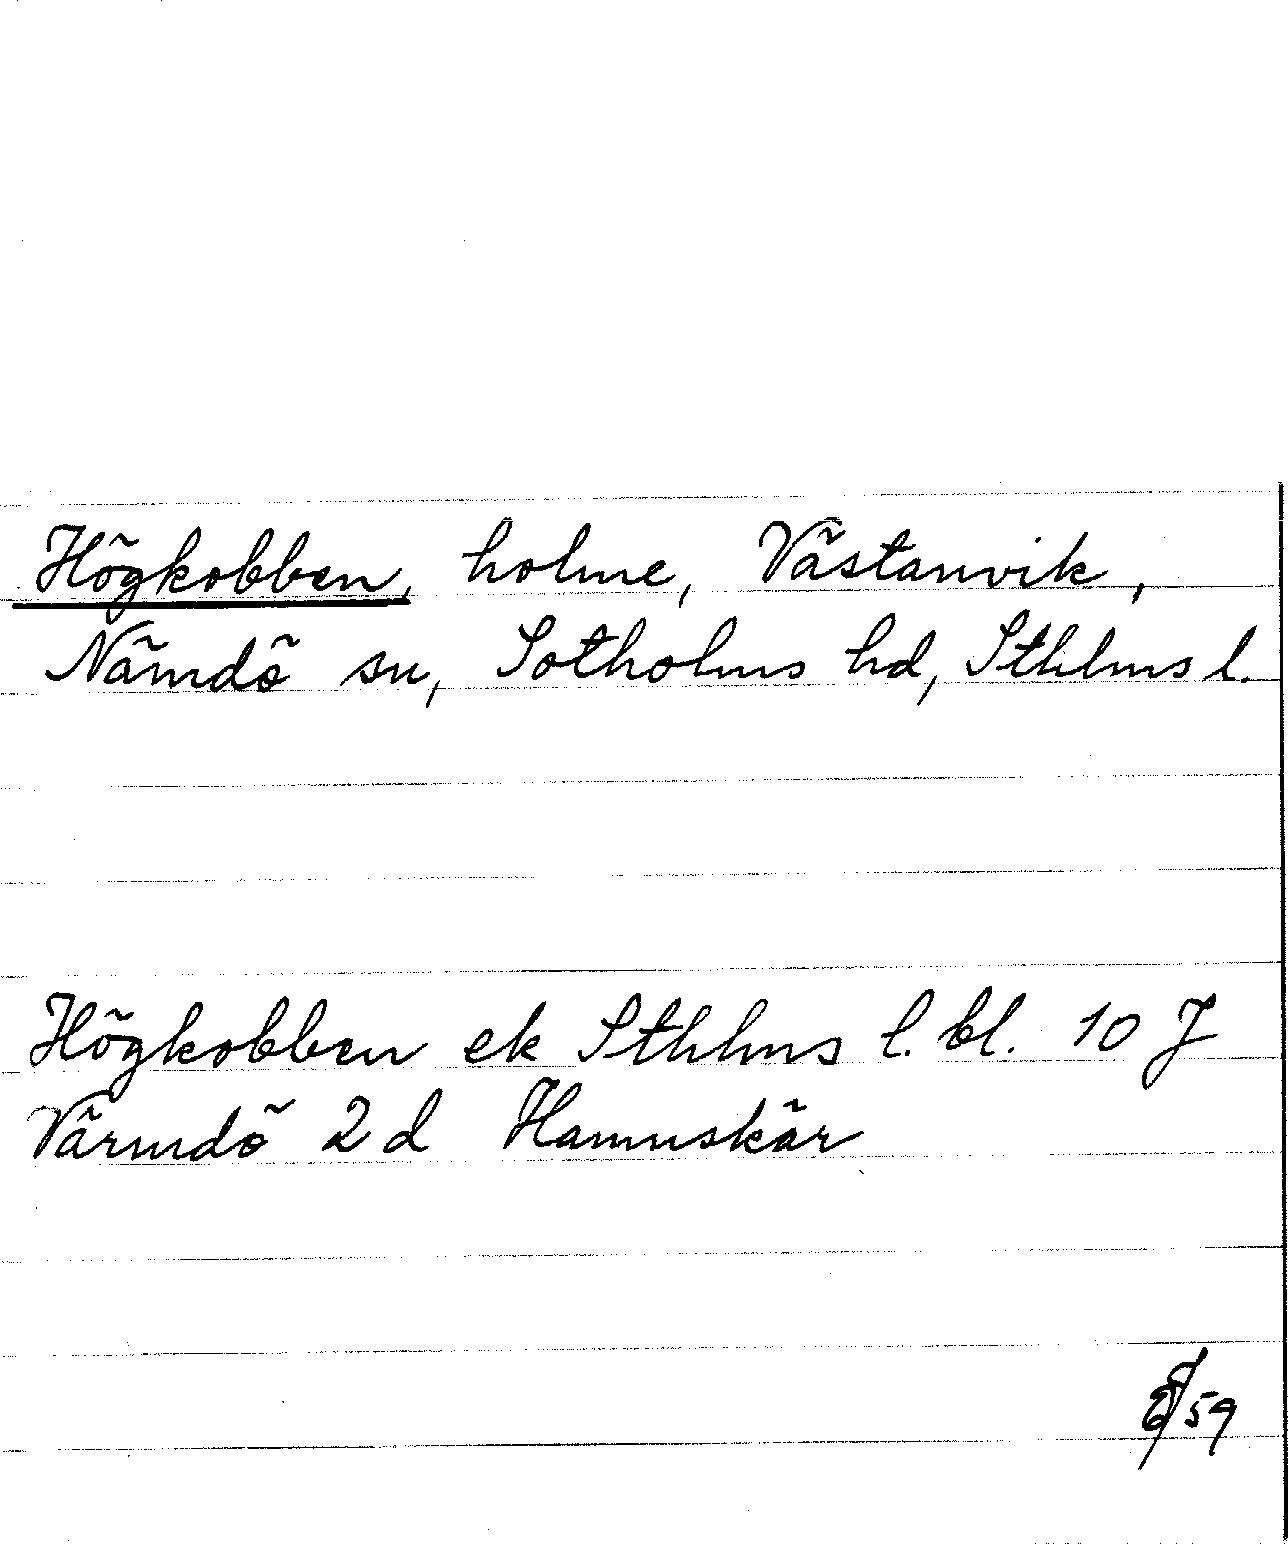 Högkobben, holme, Västanvik,
Nämdö sn, Sotholms hd, Sthlms l.
Högkobben ek Sthlms l. bl. 10 J
Värmdö 2d Hamnskär
59